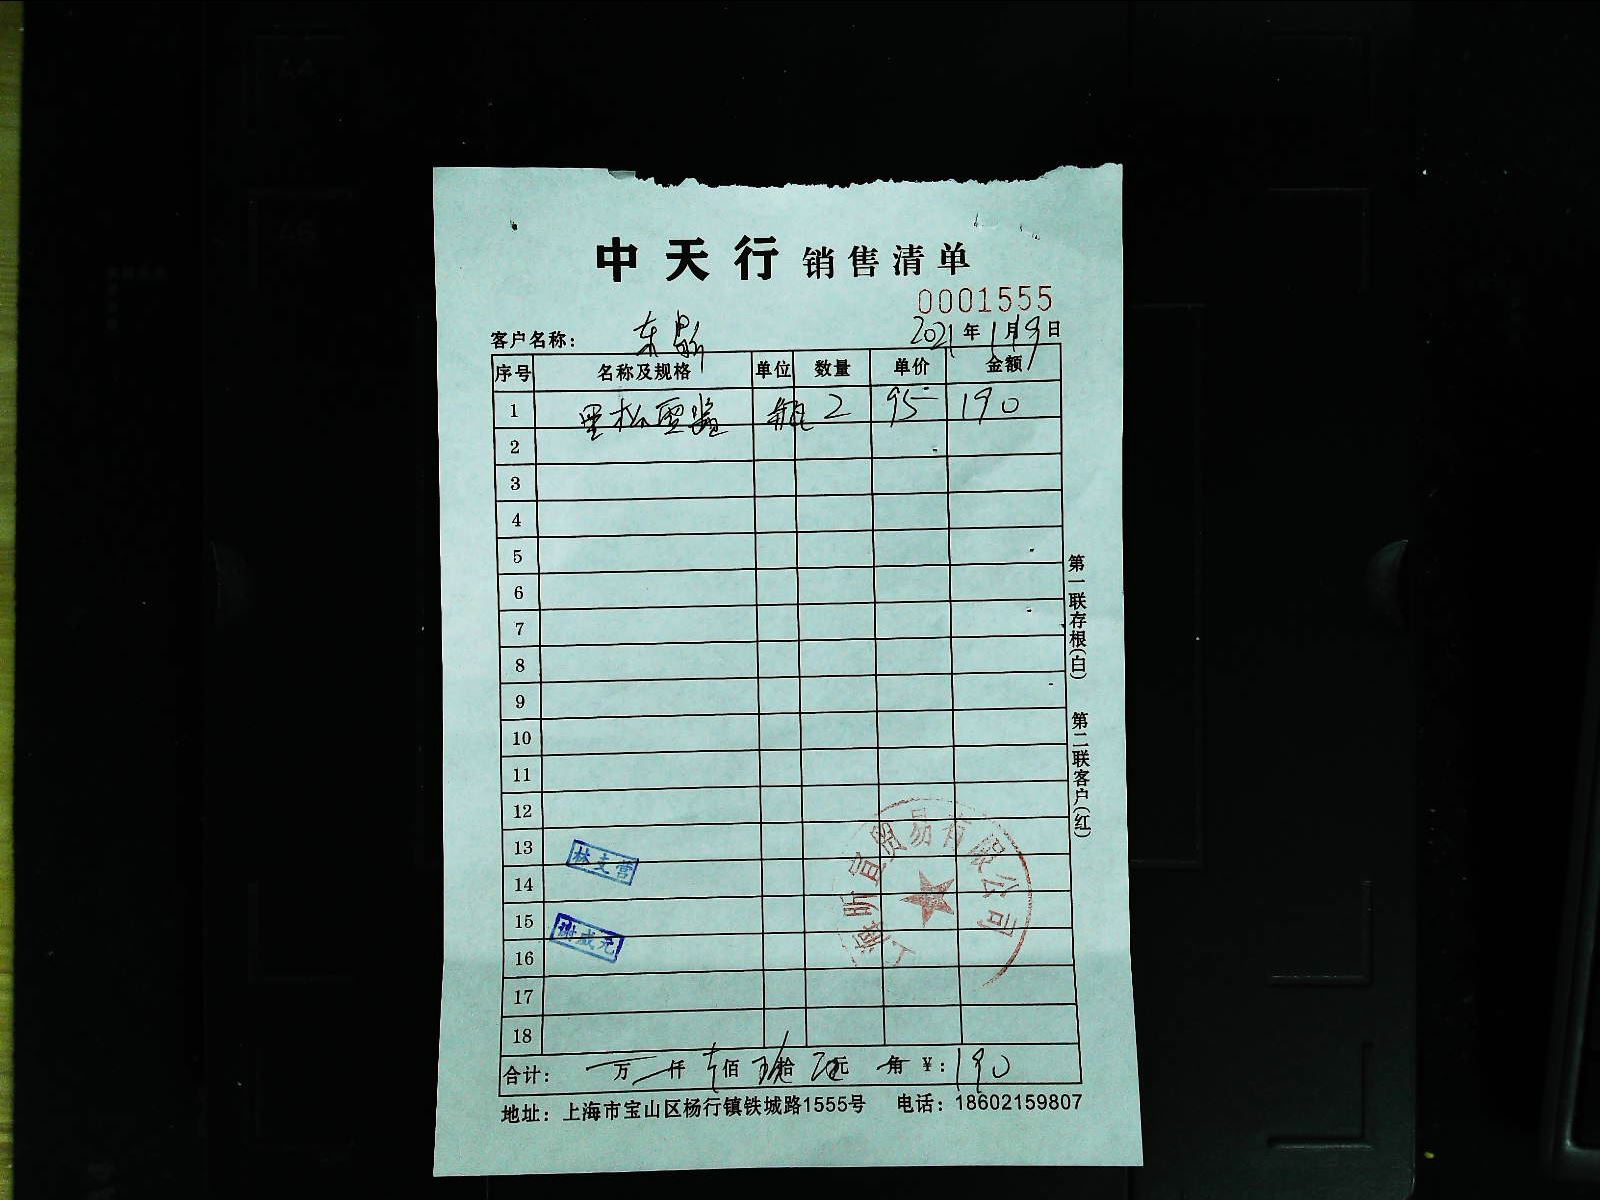 中天行 销售清单
0001555
客户名称: 东鼎 2021年1月19日
序号 名称及规格 单位 数量 单价 金额
1 黑松露酱 瓶 2 95 190
2
3
4
5
6
7
8
9
10
11
12
13
14
15
16
17
18
林支营
谢成元
上海昕宜贸易有限公司
合计: 万 仟 壹佰 玖拾 零元 角 ¥: 190
地址: 上海市宝山区杨行镇铁城路1555号 电话: 18602159807
第一联存根(白)
第二联客户(红)